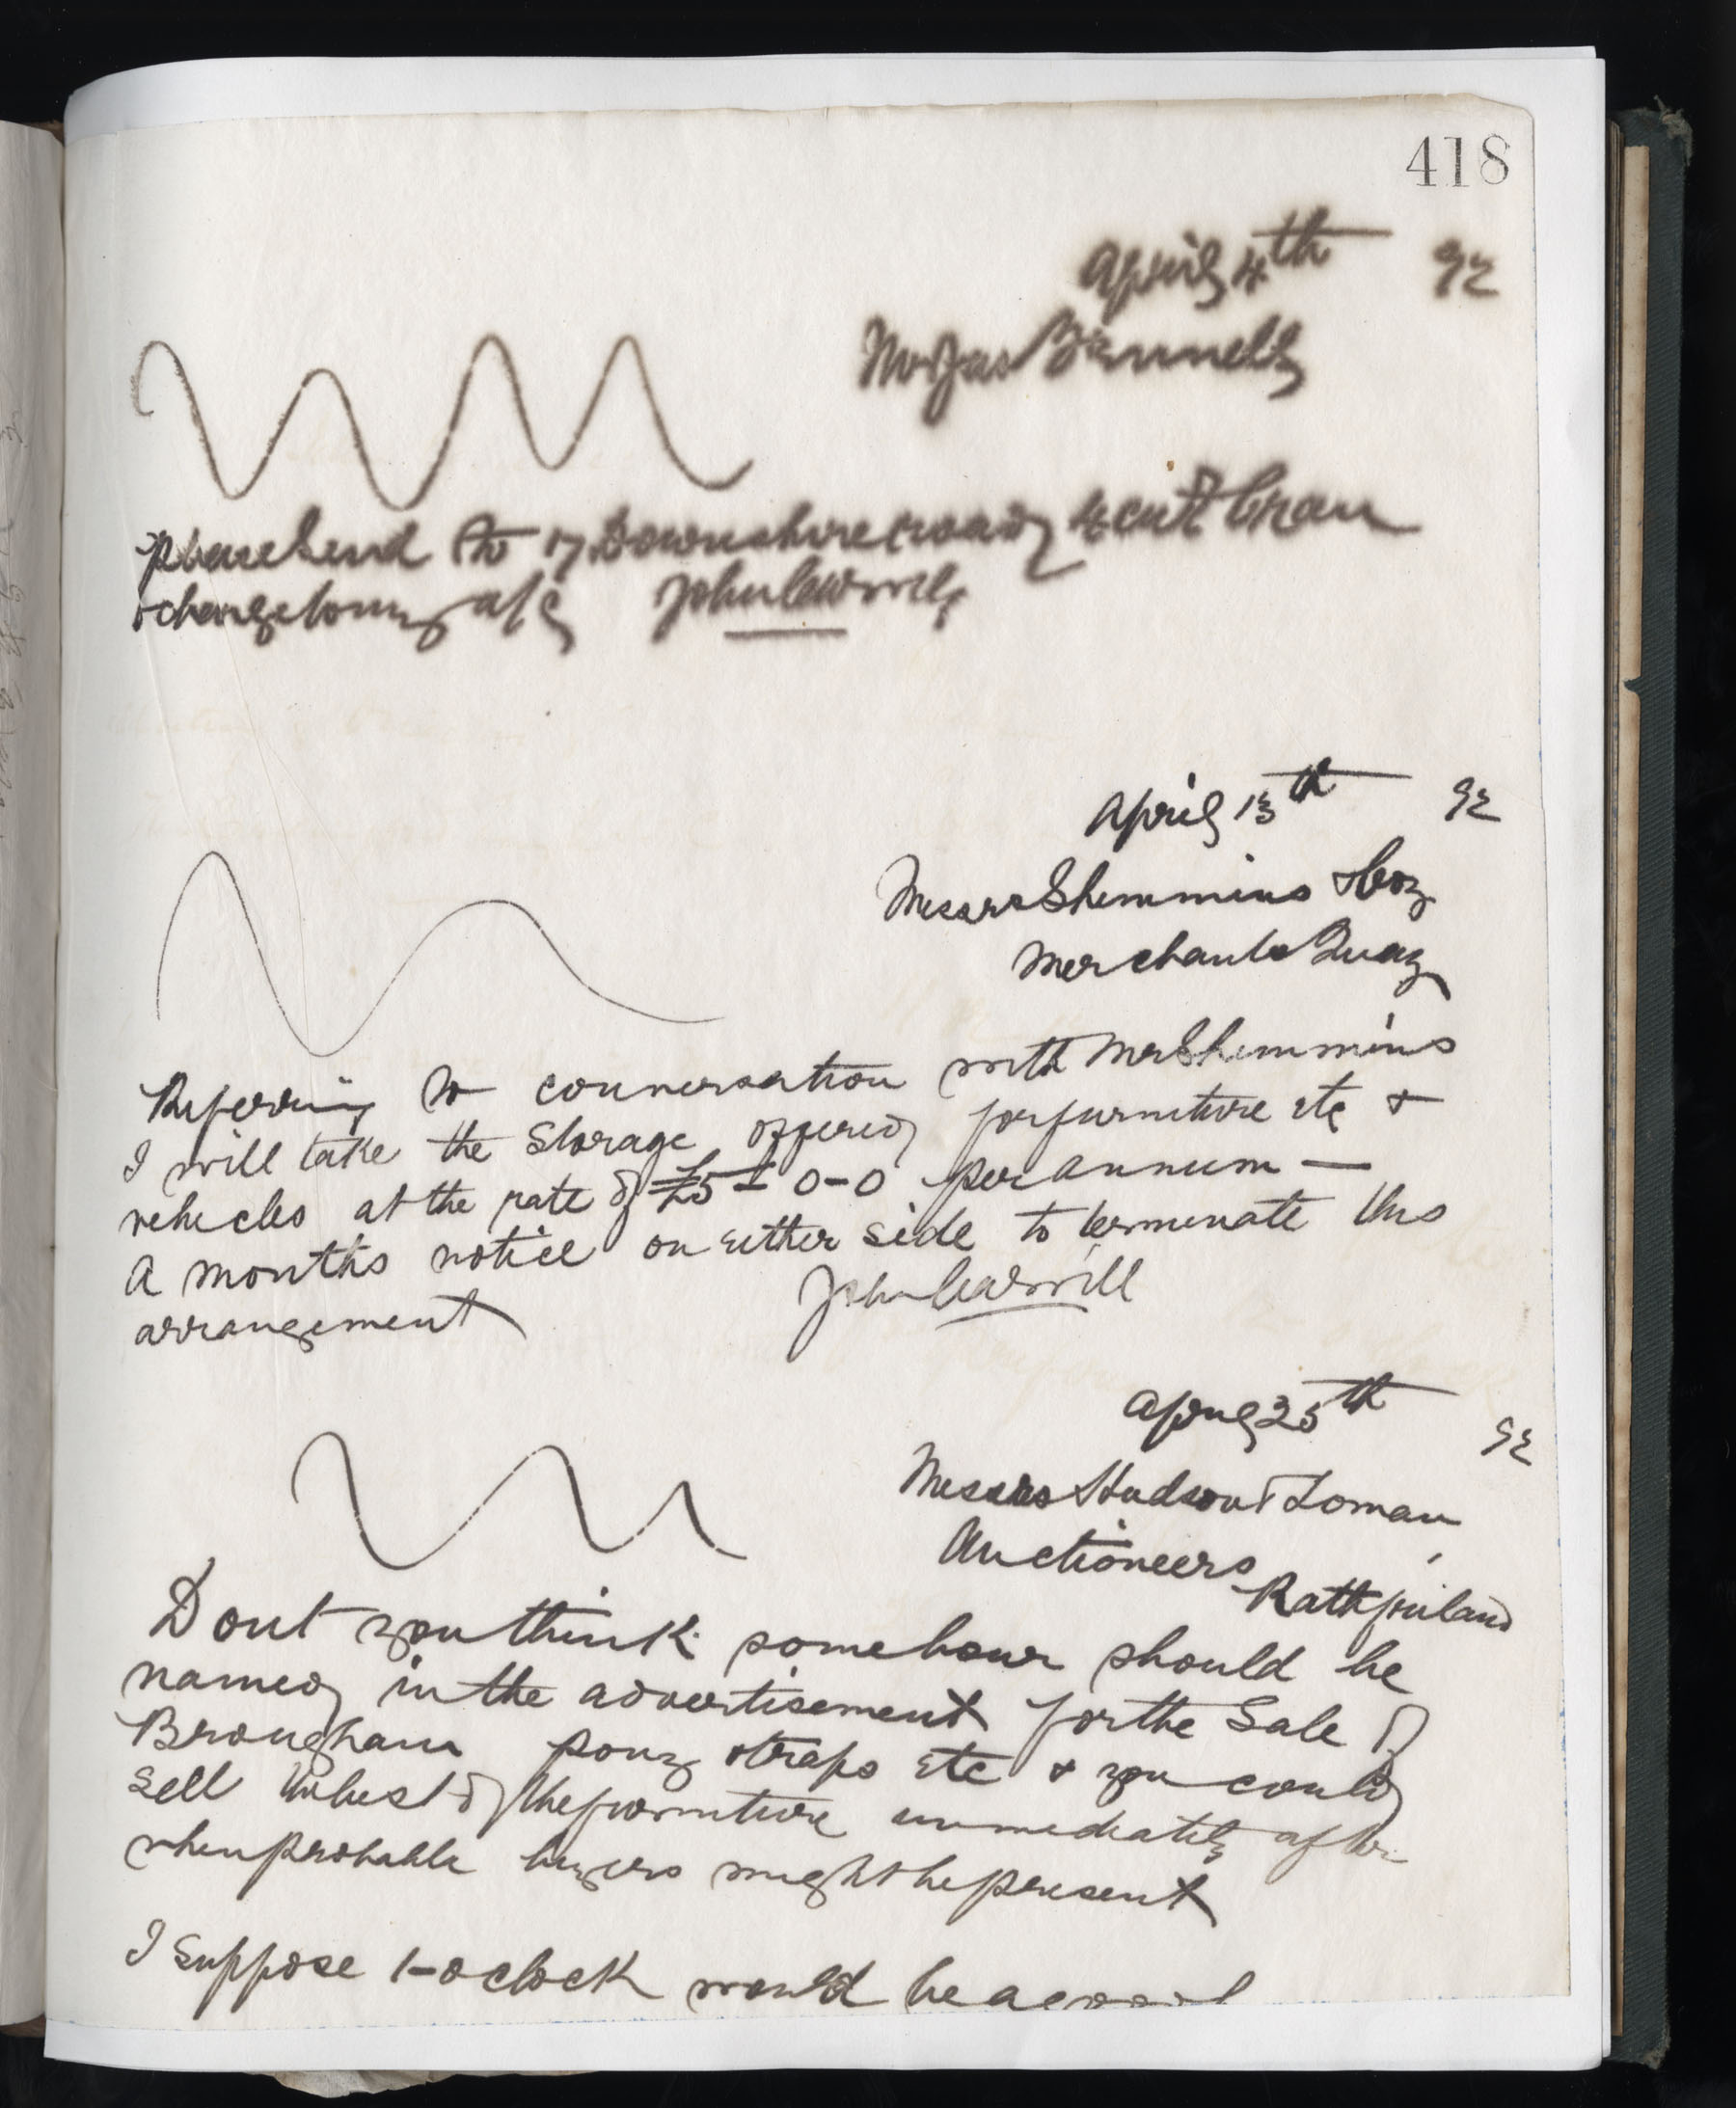 418
April 4th 92
Mr Jas Fennell
please send to 17 Downshire road 4 cwt bran
& charge to my a/c John Cawrill
April 13th 92
Messrs Shemmins & Coy
Merchants Quay
Referring to conversation with Mr Shemmins
I will take the Storage offered for furniture etc &
vehicles at the rate of £5-0-0 per annum —
A months notice on either side to terminate this
arrangement John
April 25th 92
Messrs Hudson & Loman
Auctioneers
Rathfriland
Dont you think some hour should be
named in the advertisement for the Sale of
Brougham pony traps etc & you could
Sell the best of the furniture immediately after
when probable buyers might be present
I Suppose 1-oclock would be a good